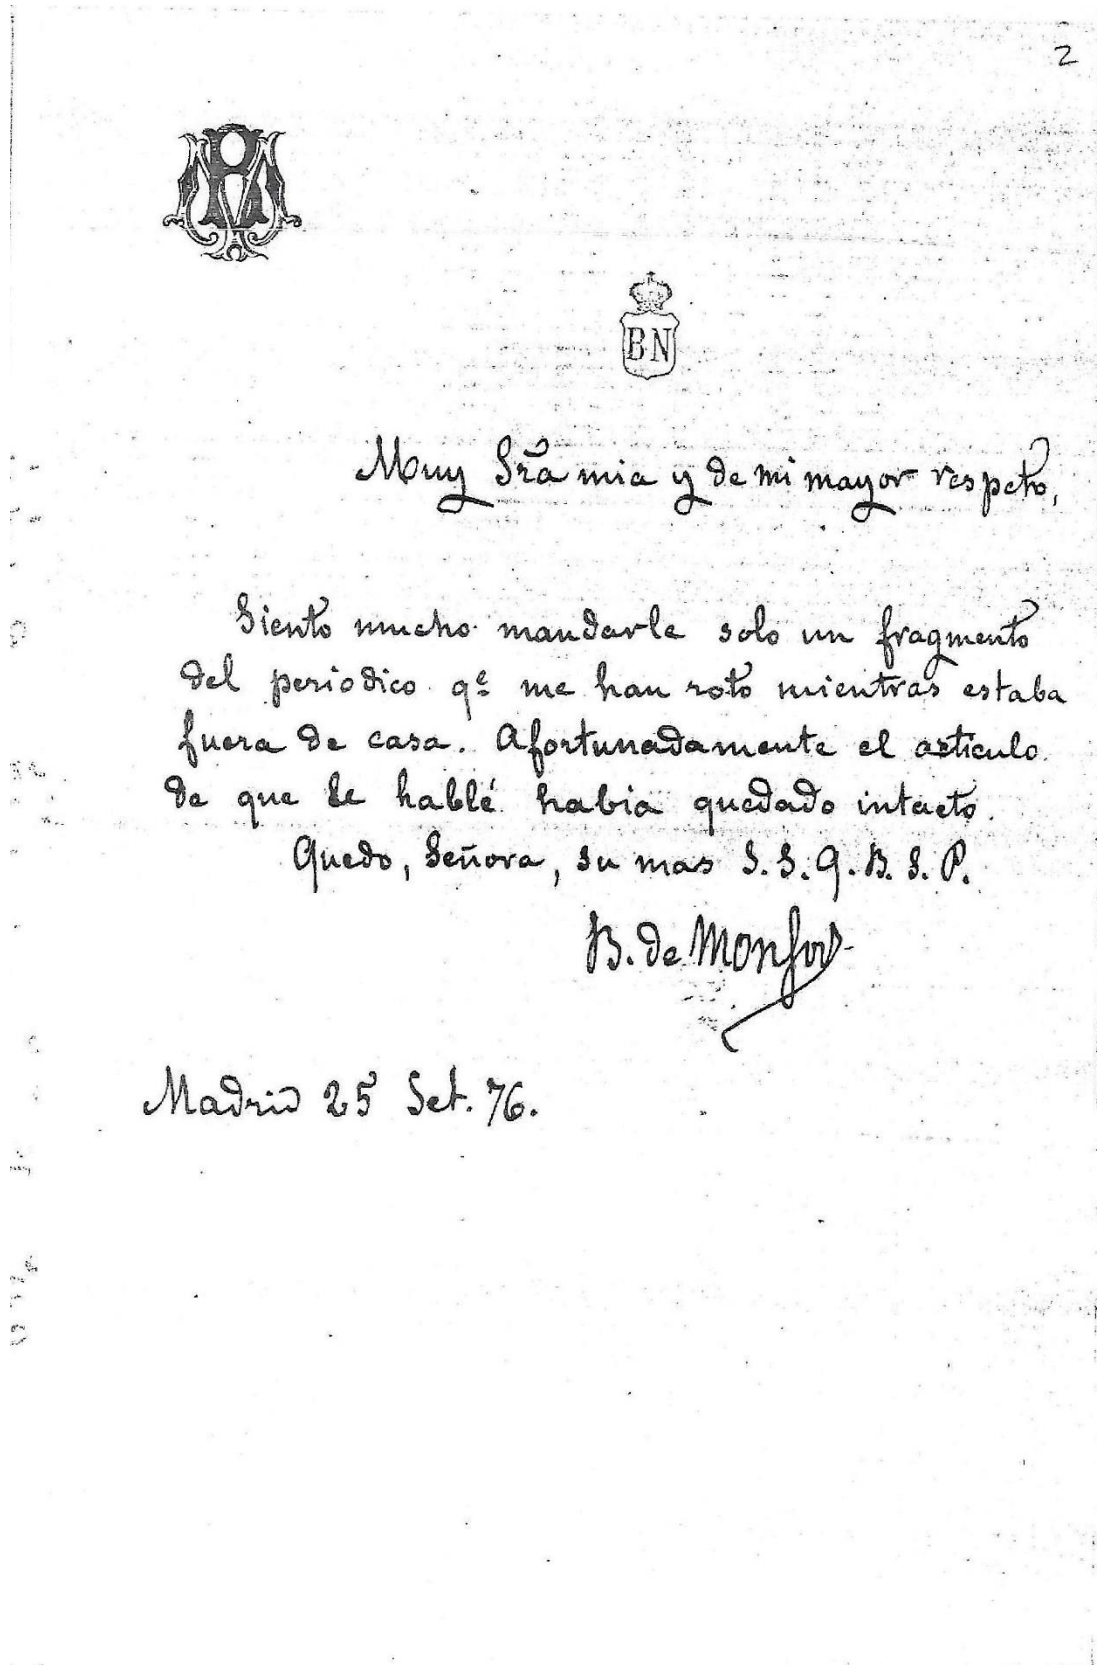 2
BN
Muy Sra mia y de mi mayor respeto,
Siento mucho mandarle solo un fragmento
del periodico qe me han roto mientras estaba
fuera de casa. Afortunadamente el articulo
de que le hablé habia quedado intacto.
Quedo, Señora, su mas S. S. Q. B. S. P.
B. de Monfort
Madrid 25 Set. 76.